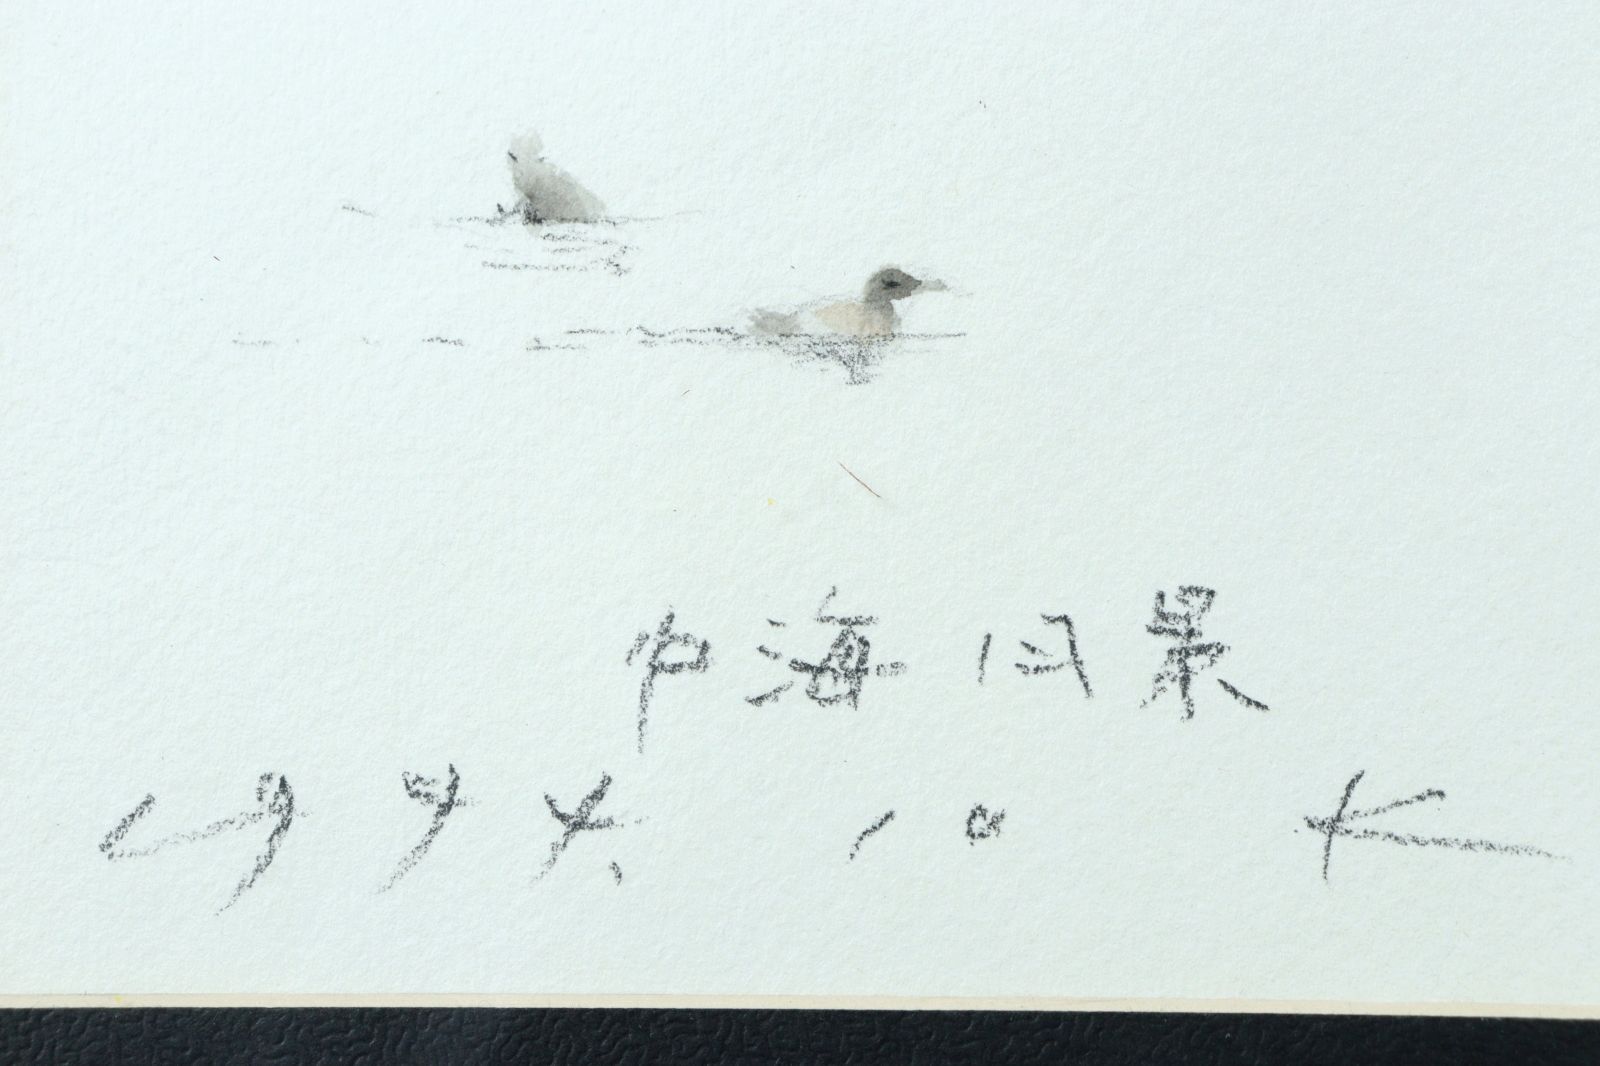 中海風景
1994. 10 K